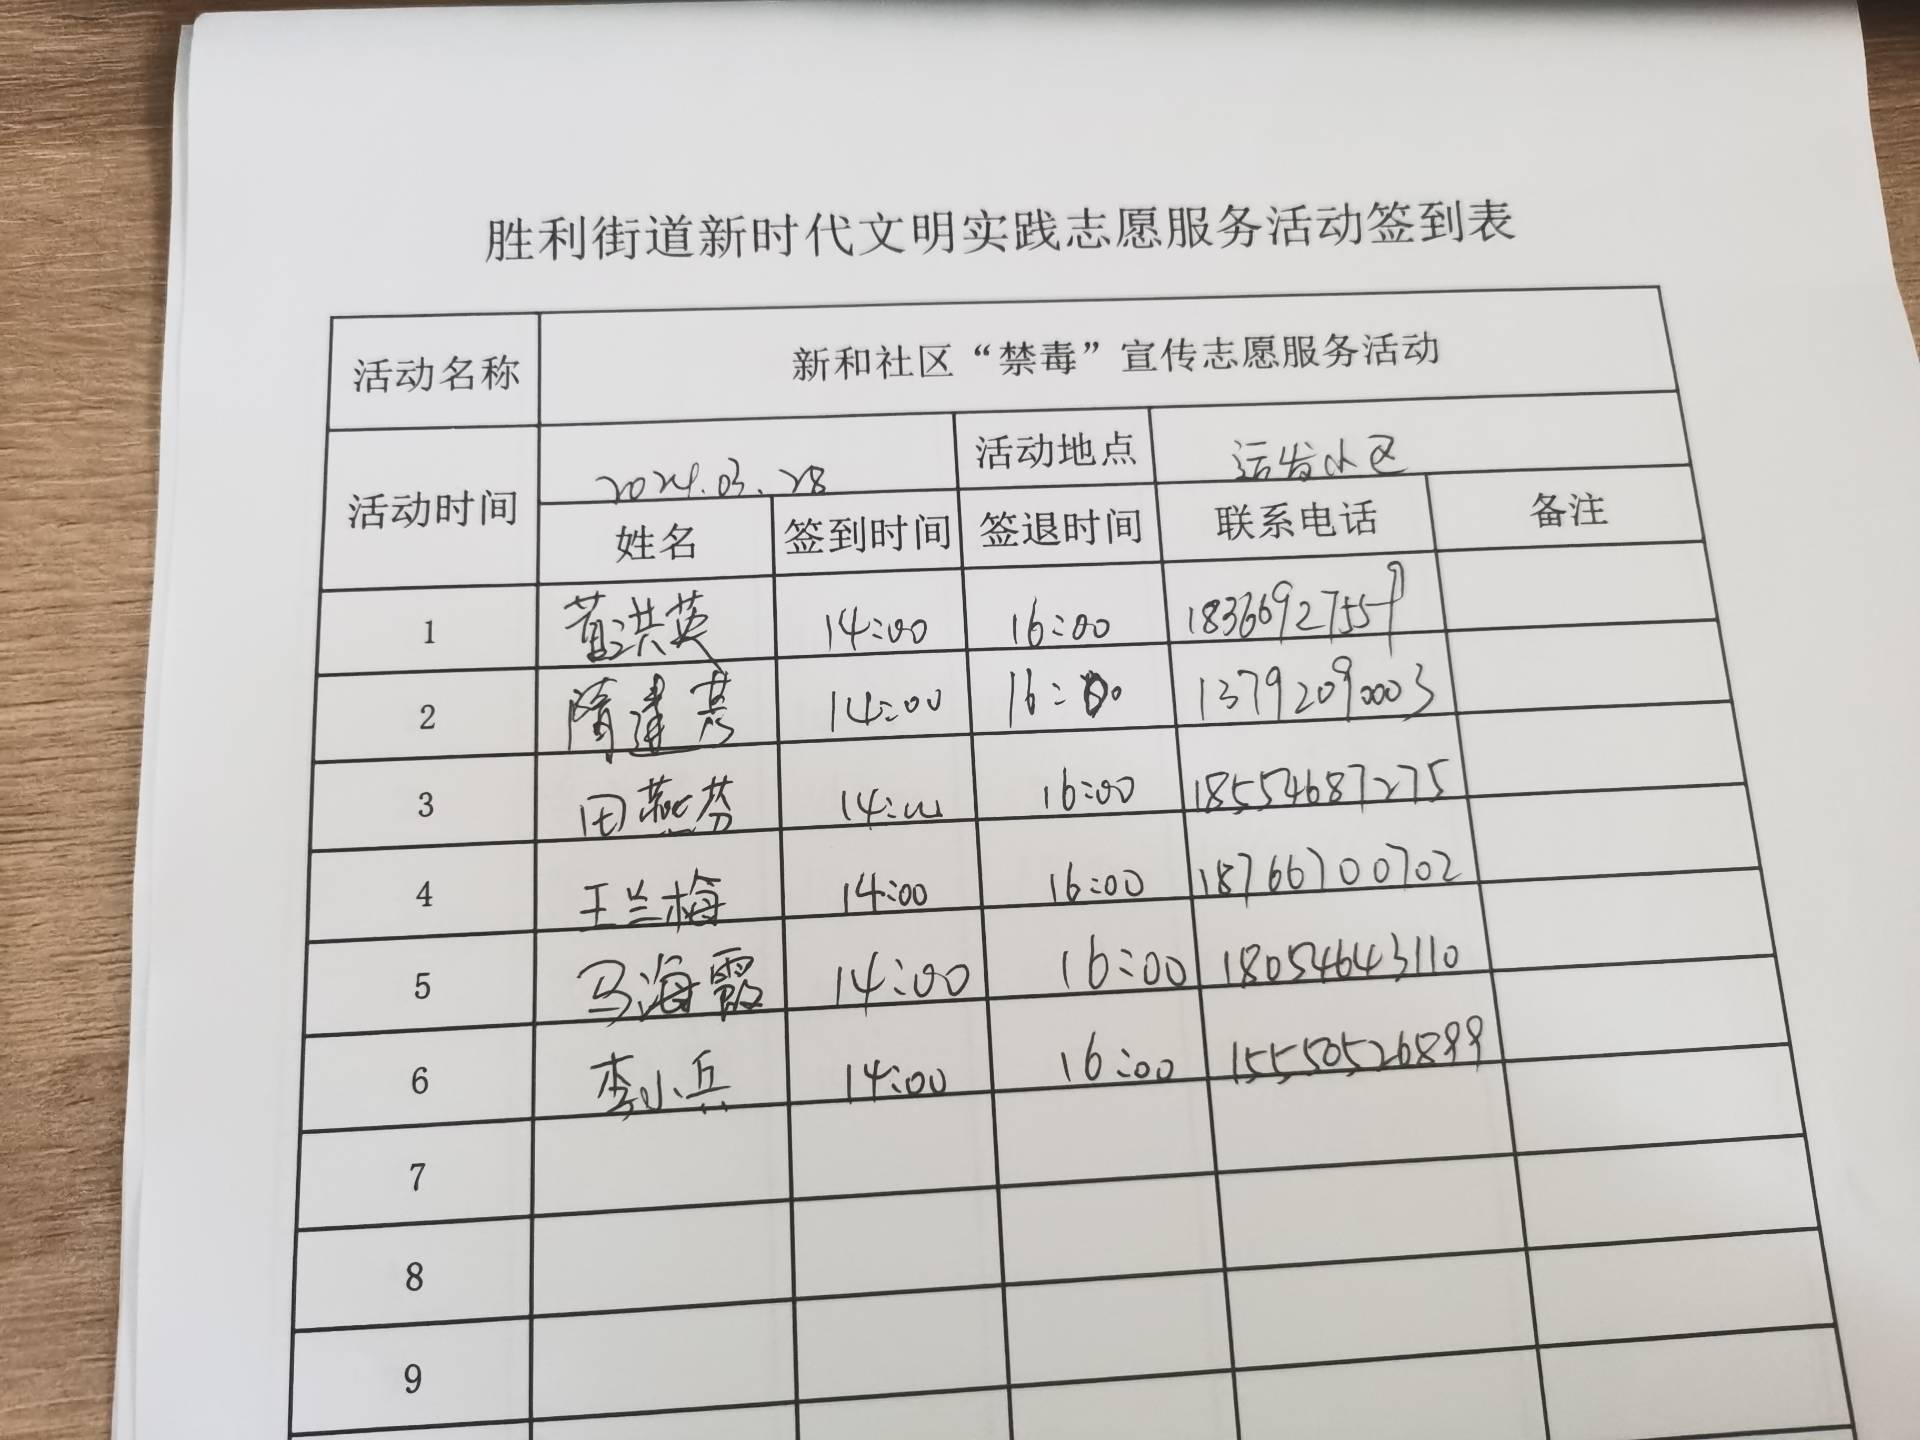 胜利街道新时代文明实践志愿服务活动签到表
活动名称 新和社区“禁毒”宣传志愿服务活动
活动时间 2024.03.28 活动地点 运发小区
姓名 签到时间 签退时间 联系电话 备注
1 洪英 14:00 16:00 18366927559
2 隋建芳 14:00 16:00 13792090003
3 田燕芬 14:00 16:00 18554687275
4 王兰梅 14:00 16:00 18766700702
5 马海霞 14:00 16:00 18054643110
6 李小兵 14:00 16:00 15550526899
7
8
9